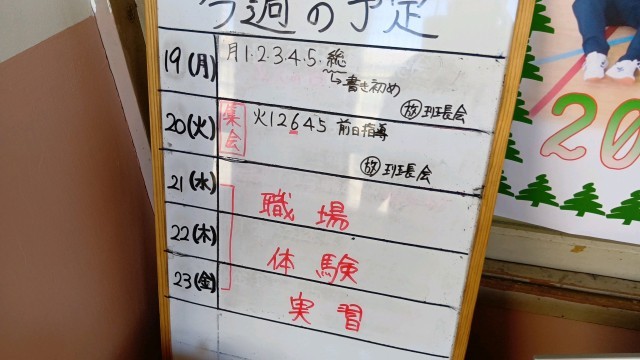 今週の予定
19(月) 月1・2・3・4・5・総
→書き初め
放 班長会
20(火) 集会 火12645 前日指導
放 班長会
21(水) 職場
22(木) 体験
23(金) 実習
20